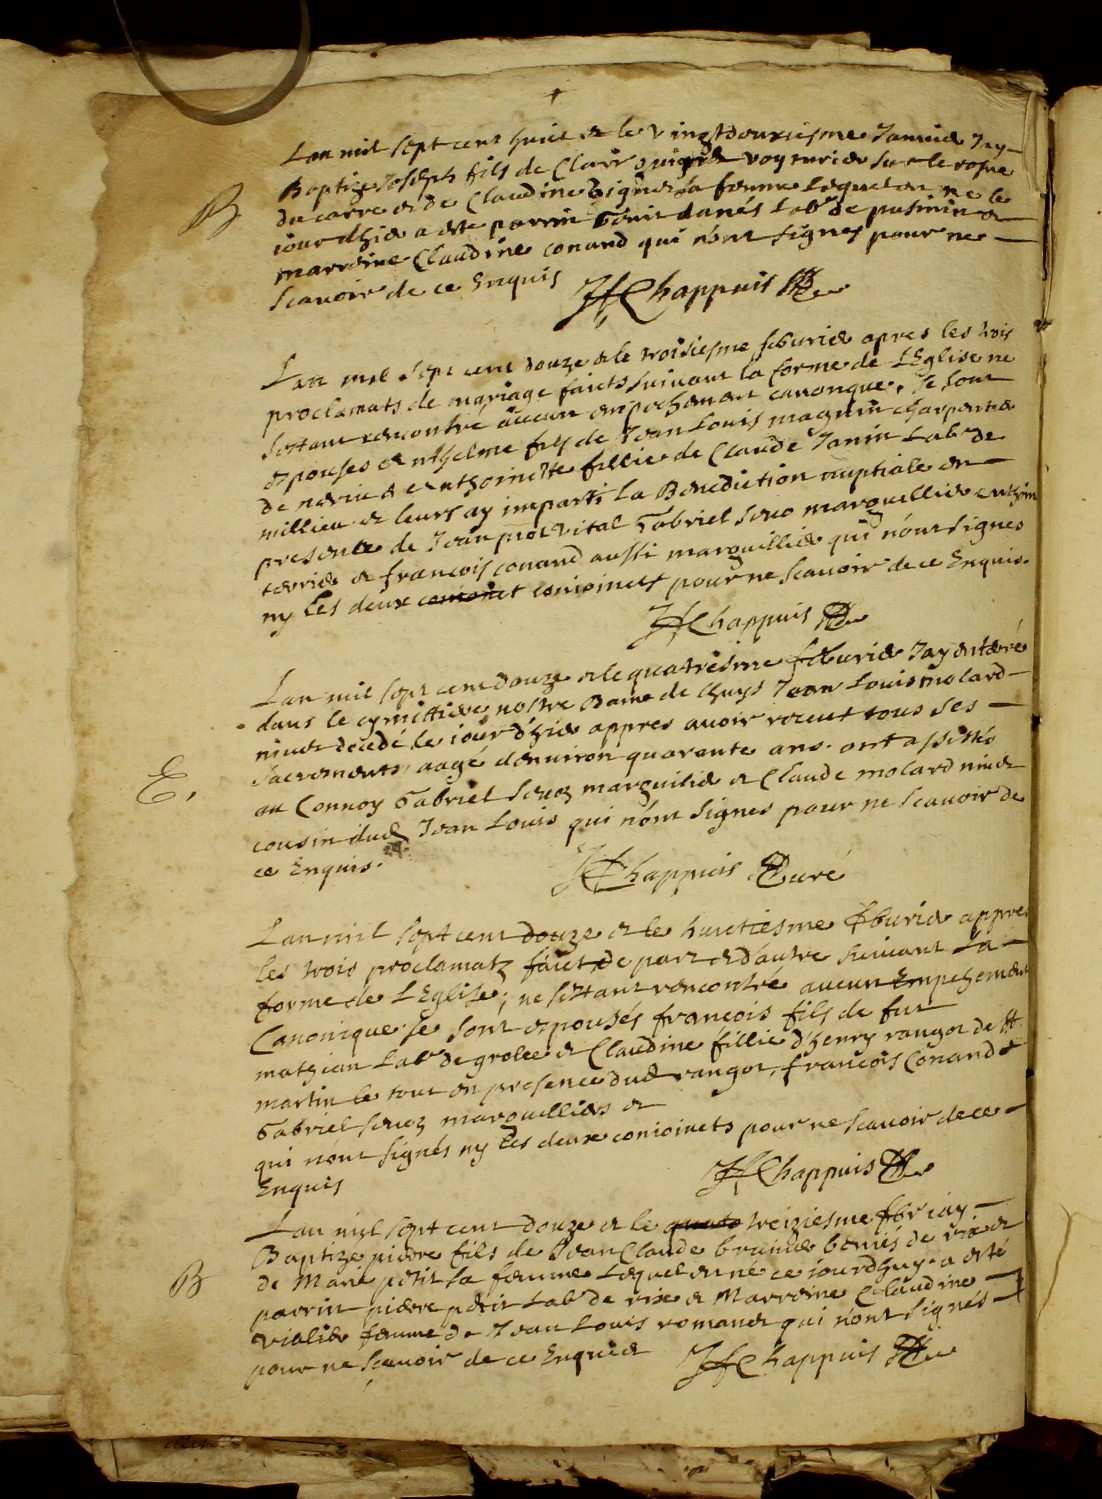 Lan mil sept cent huict & le vingtdouxiesme Januier Jay
B
Baptize Joseph fils de Clair voyturier sur le rosne
du carre & de Claudine sa femme Lequel est ne le
iour dhier a esté parrin danés Labr de pusinin &
marreine Claudine conand qui n'ont signes pour ne
scauoir de ce Enquis JfChappuis
Lan mil sept cent douze & le troisiesme feburier apres les trois
proclamats de mariage faicts suiuant la forme de LEglise ne
sestant rencontré aucun empechement canonique, se sont
espouses Anthelme fils de Jean Louis magnin charpentier
de & Anthoinette fillie de Claude Janin Labr de
millieu & leurs ay imparti La Benediction nuptiale en
presence de Jean vital Gabriel marguellier
& francois conand aussi marguillier qui n'ont signes
ny Les deux conioincts pour ne scauoir de ce Enquis.
JfChappuis
Lan mil sept cent douze & le quatresme feburier Jay enterré
dans le cymittiere nostre Dame de Jean Louis molard
E.
decedé le iour d'hier appres auoir receut tous ses
sacrements, aagé d'enuiron quarente ans. ont assistés
au Connoy Gabriel marguilier & Claude molard
cousin dud Jean Louis qui n'ont signes pour ne scauoir de
ce Enquis.
JfChappuis Curé
Lan mil sept cent douze & le huictiesme feburier appres
les trois proclamatz faict de part & d'autre suiuant La
forme de LEglise, ne sestant rencontré aucun Empechement
Canonique se sont espousés francois fils de fut
Labr de grolee & Claudine fillie d'henry rangot de St
martin le tout en presence dud rangot, francois Conand &
Gabriel marguilliers &
qui n'ont signés ny Les deux conioincts pour ne scauoir de ce
Enquis
JfChappuis
Lan mil sept cent douze & le treiziesme fbr iay
B
Baptize pierre fils de Jean Claude de &
de Marie petit sa femme Lequel est né ce iourdhuy a esté
parrin pierre petit Labr de & Marreine Claudine
femme de Jean Louis romand qui n'ont signés
pour ne scauoir de ce Enquis JfChappuis